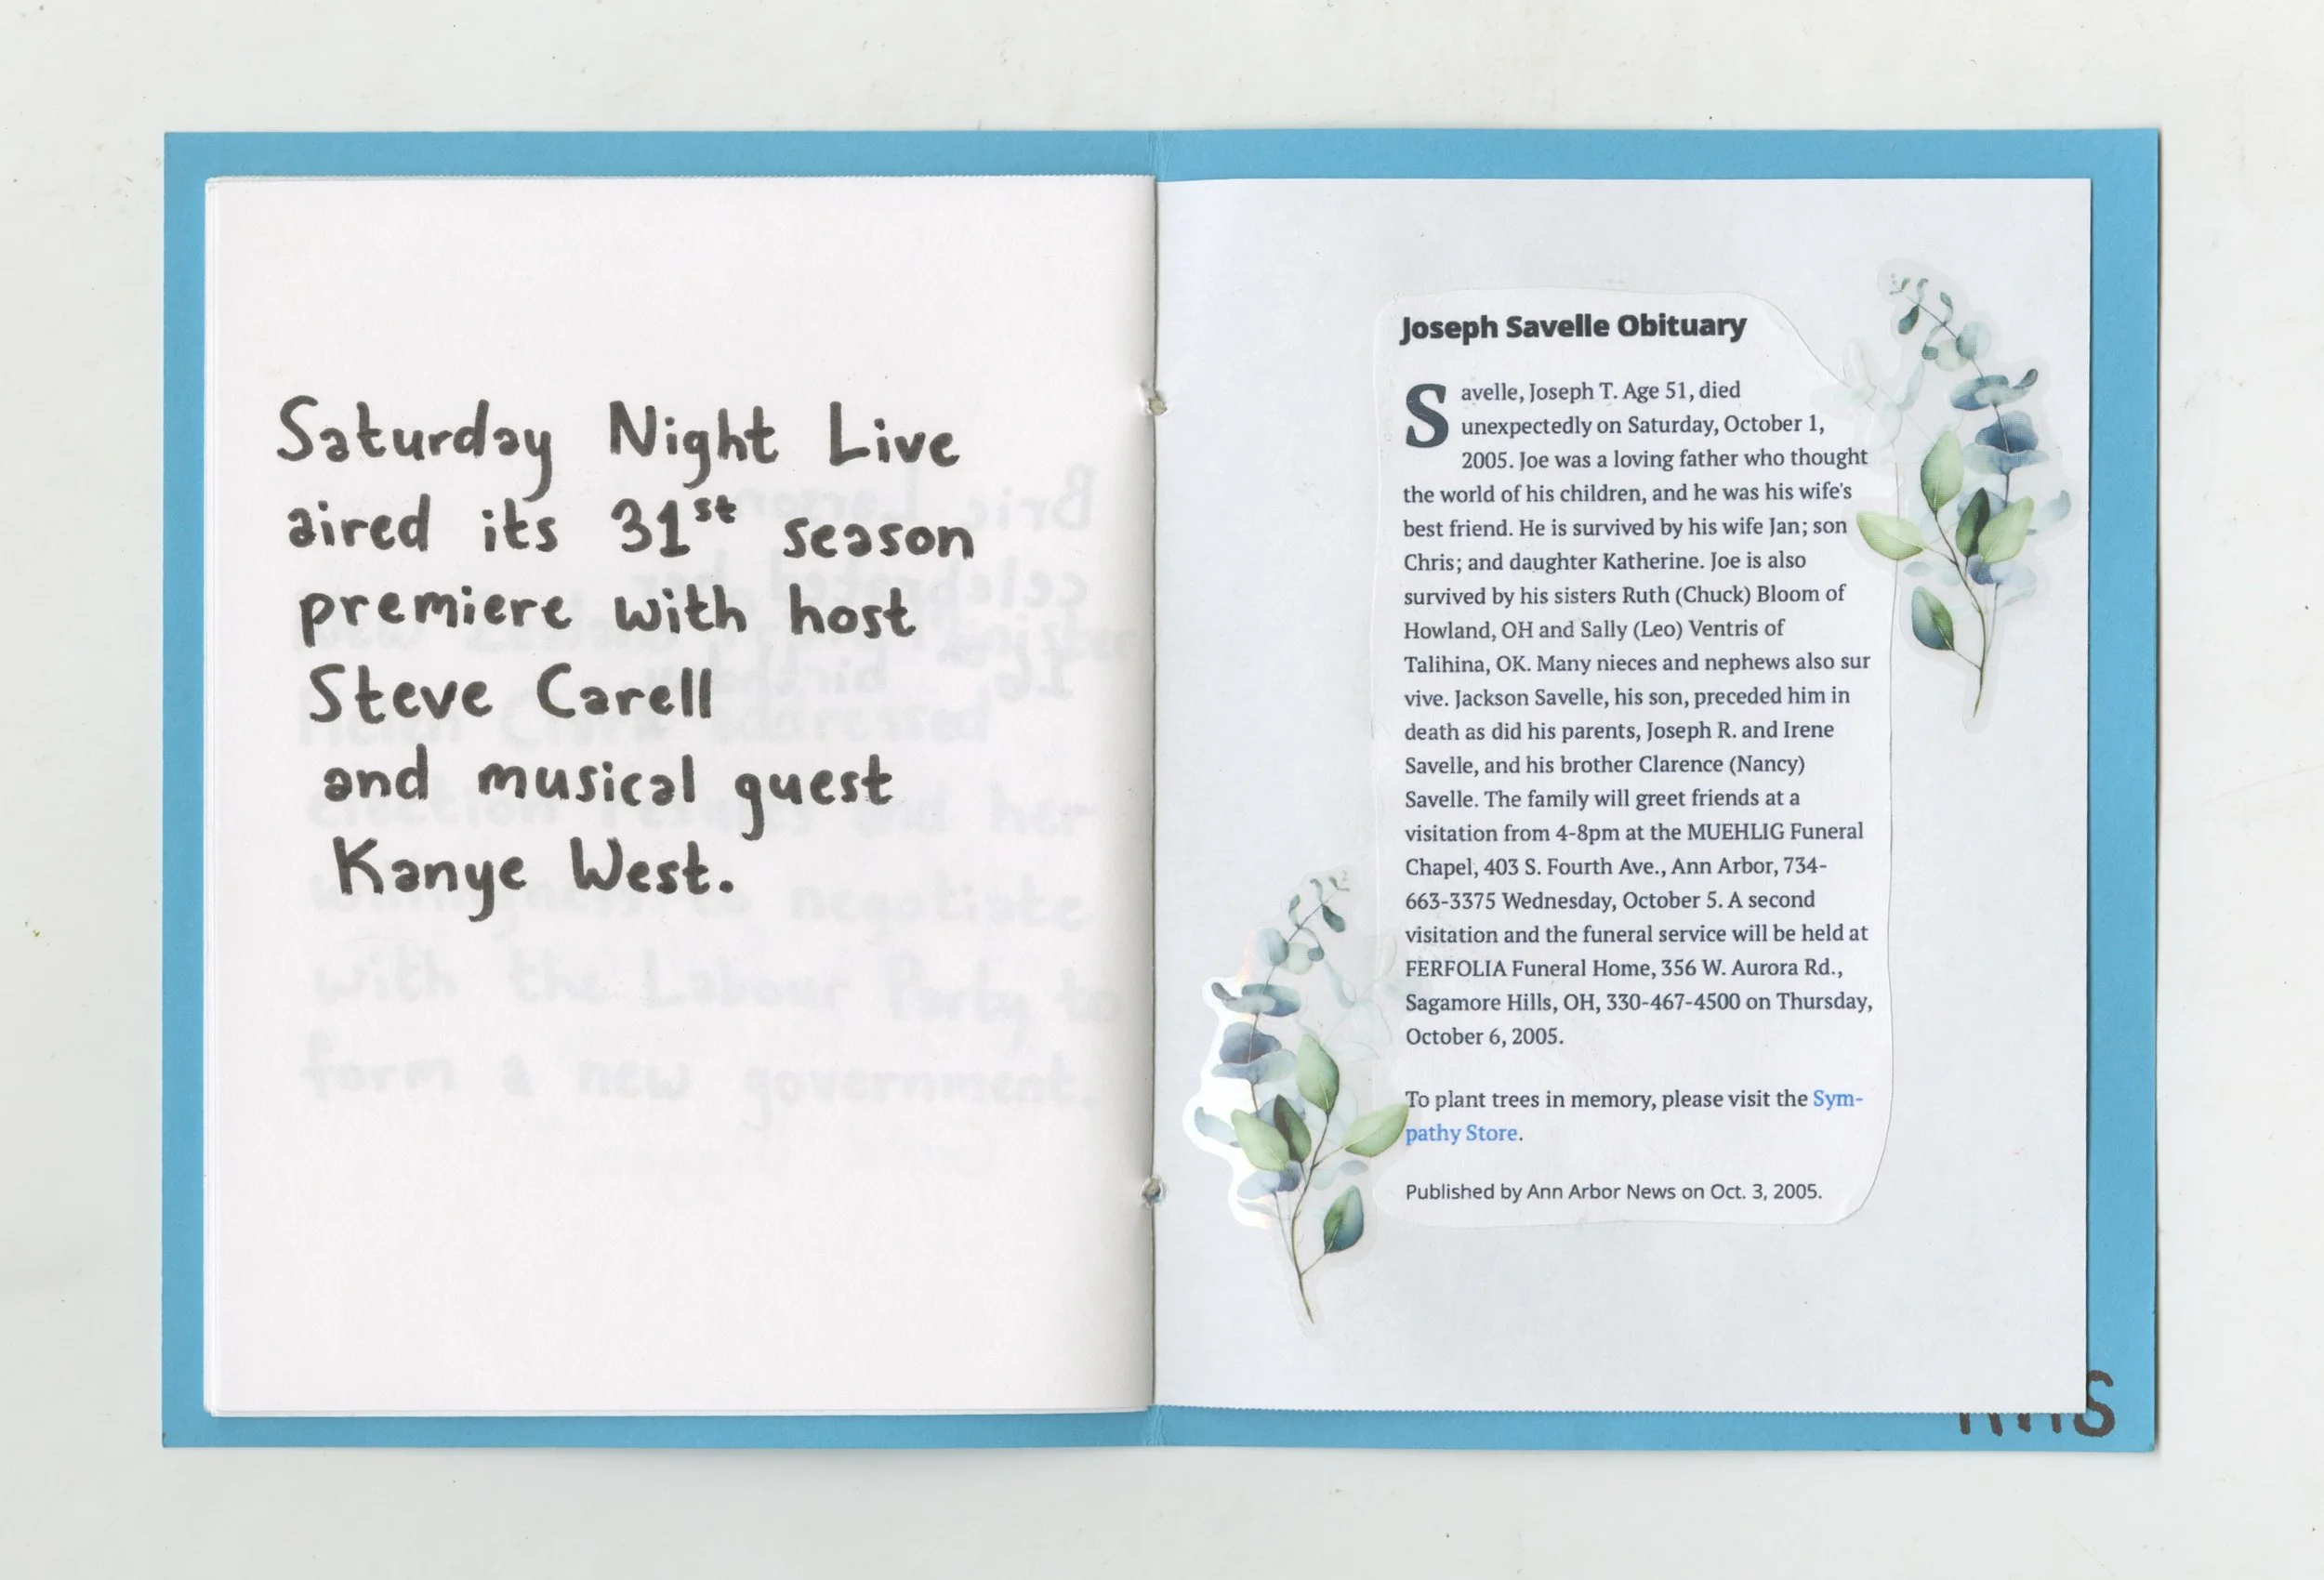 Saturday Night Live
aired its 31st season
premiere with host
Steve Carell
and musical guest
Kanye West.
Joseph Savelle Obituary
Savelle, Joseph T. Age 51, died
unexpectedly on Saturday, October 1,
2005. Joe was a loving father who thought
the world of his children, and he was his wife's
best friend. He is survived by his wife Jan; son
Chris; and daughter Katherine. Joe is also
survived by his sisters Ruth (Chuck) Bloom of
Howland, OH and Sally (Leo) Ventris of
Talihina, OK. Many nieces and nephews also sur
vive. Jackson Savelle, his son, preceded him in
death as did his parents, Joseph R. and Irene
Savelle, and his brother Clarence (Nancy)
Savelle. The family will greet friends at a
visitation from 4-8pm at the MUEHLIG Funeral
Chapel, 403 S. Fourth Ave., Ann Arbor, 734-
663-3375 Wednesday, October 5. A second
visitation and the funeral service will be held at
FERFOLIA Funeral Home, 356 W. Aurora Rd.,
Sagamore Hills, OH, 330-467-4500 on Thursday,
October 6, 2005.
To plant trees in memory, please visit the Sym-
pathy Store.
Published by Ann Arbor News on Oct. 3, 2005.